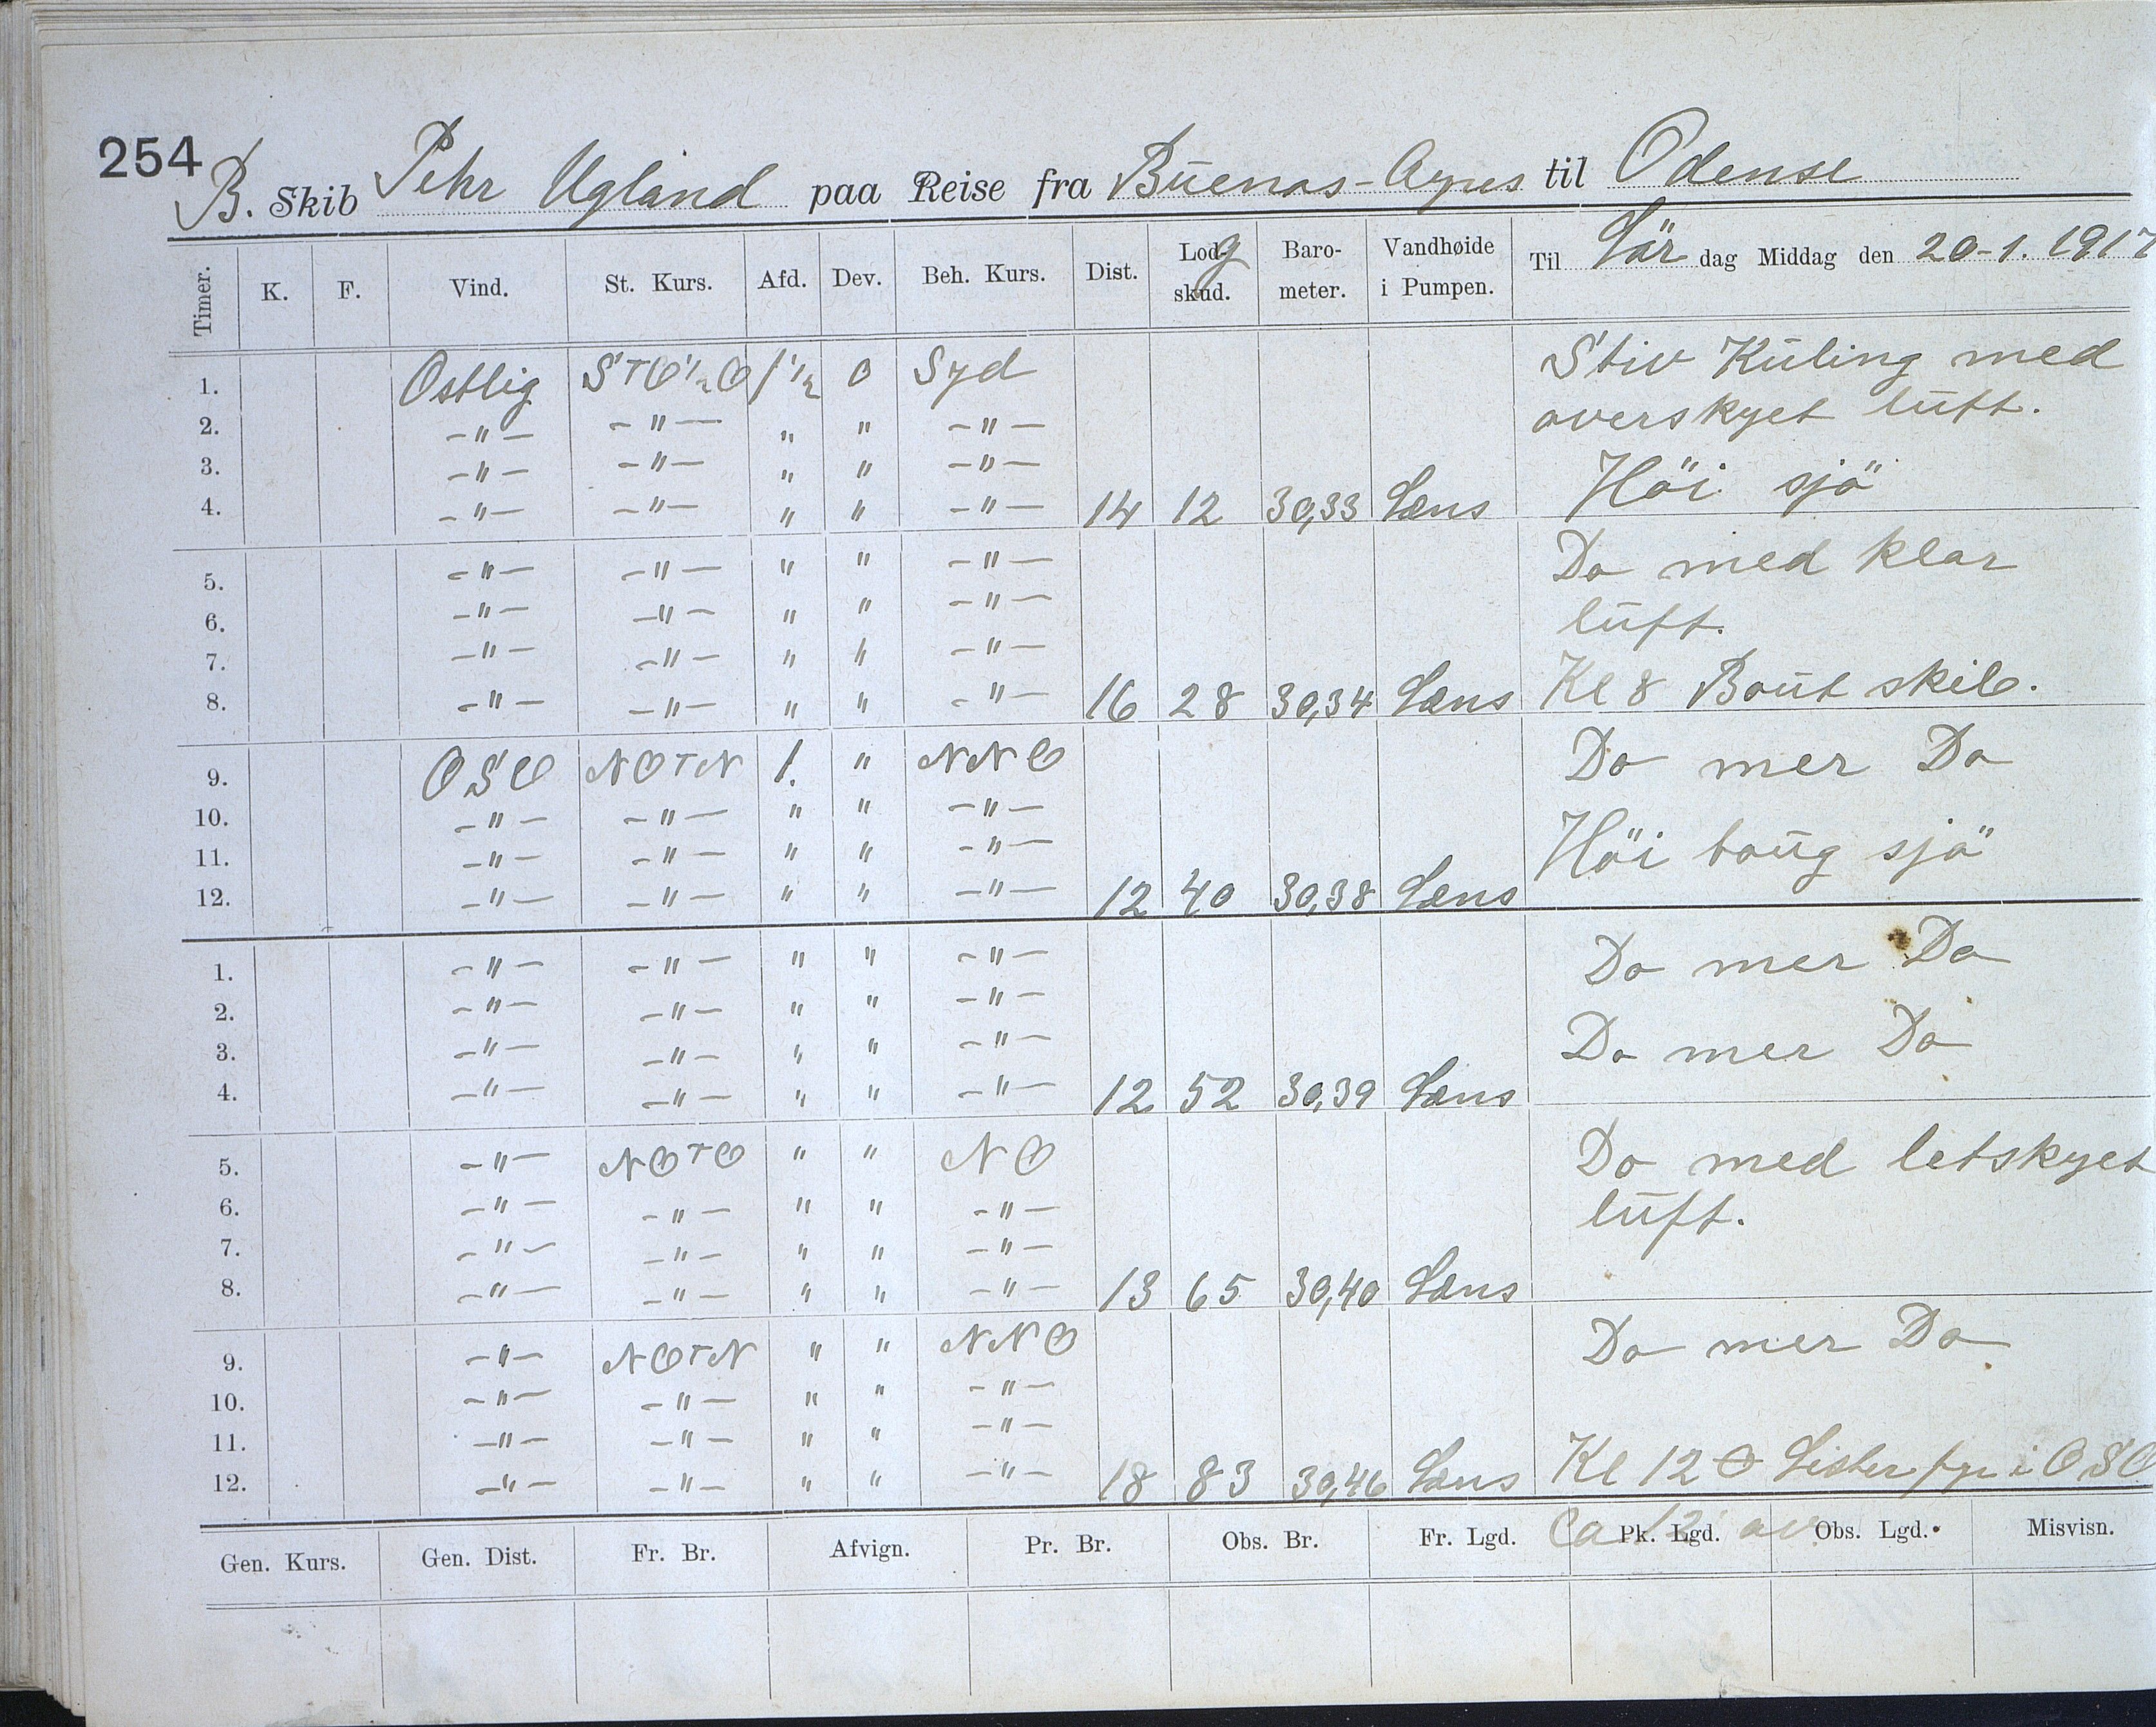 254
B. Skib Pehr Ugland paa Reise fra Buenos-Ayres til Odense
Timer. K. F. Vind. St. Kurs. Afd. Dev. Beh. Kurs. Dist. Lodg skud. Baro-meter. Vandhøide i Pumpen. Til Lör dag Middag den 20-1. 1917
1. Ostlig STO½O 1½ 0 Syd Stiv Kuling med
2. -"- -"- " " -"- overskyet luft.
3. -"- -"- " " -"- Höi sjö
4. -"- -"- " " -"- 14 12 30,33 Læns
5. -"- -"- " " -"- Do med klar
6. -"- -"- " " -"- luft.
7. -"- -"- " " -"-
8. -"- -"- " " -"- 16 28 30,34 Læns Kl 8 Bout skib.
9. OSO NOTN 1. " NNO Do mer Do
10. -"- -"- " " -"-
11. -"- -"- " " -"- Höi boug sjö
12. -"- -"- " " -"- 12 40 30,38 Læns
1. -"- -"- " " -"- Do mer Do
2. -"- -"- " " -"-
3. -"- -"- " " -"- Do mer Do
4. -"- -"- " " -"- 12 52 30,39 Læns
5. -"- NOTO " " NO Do med letskyet
6. -"- -"- " " -"- luft.
7. -"- -"- " " -"-
8. -"- -"- " " -"- 13 65 30,40 Læns
9. -"- NOTN " " NNO Do mer Do
10. -"- -"- " " -"-
11. -"- -"- " " -"-
12. -"- -"- " " -"- 18 83 30,46 Læns Kl 12 Lister fyr i OSO
Ca 12' av.
Gen. Kurs. Gen. Dist. Fr. Br. Afvign. Pr. Br. Obs. Br. Fr. Lgd. Pk. Lgd. Obs. Lgd. Misvisn.